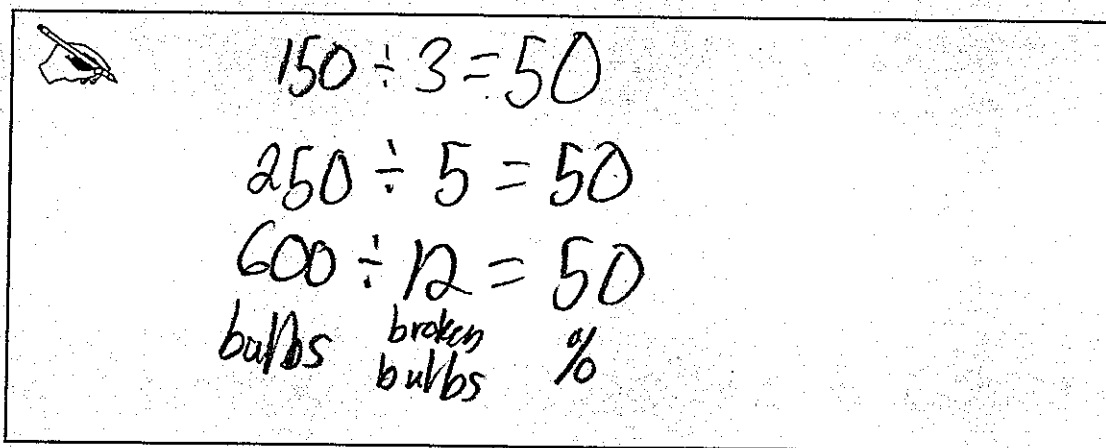 150 ÷ 3 = 50
250 ÷ 5 = 50
600 ÷ 12 = 50
bulbs broken bulbs %